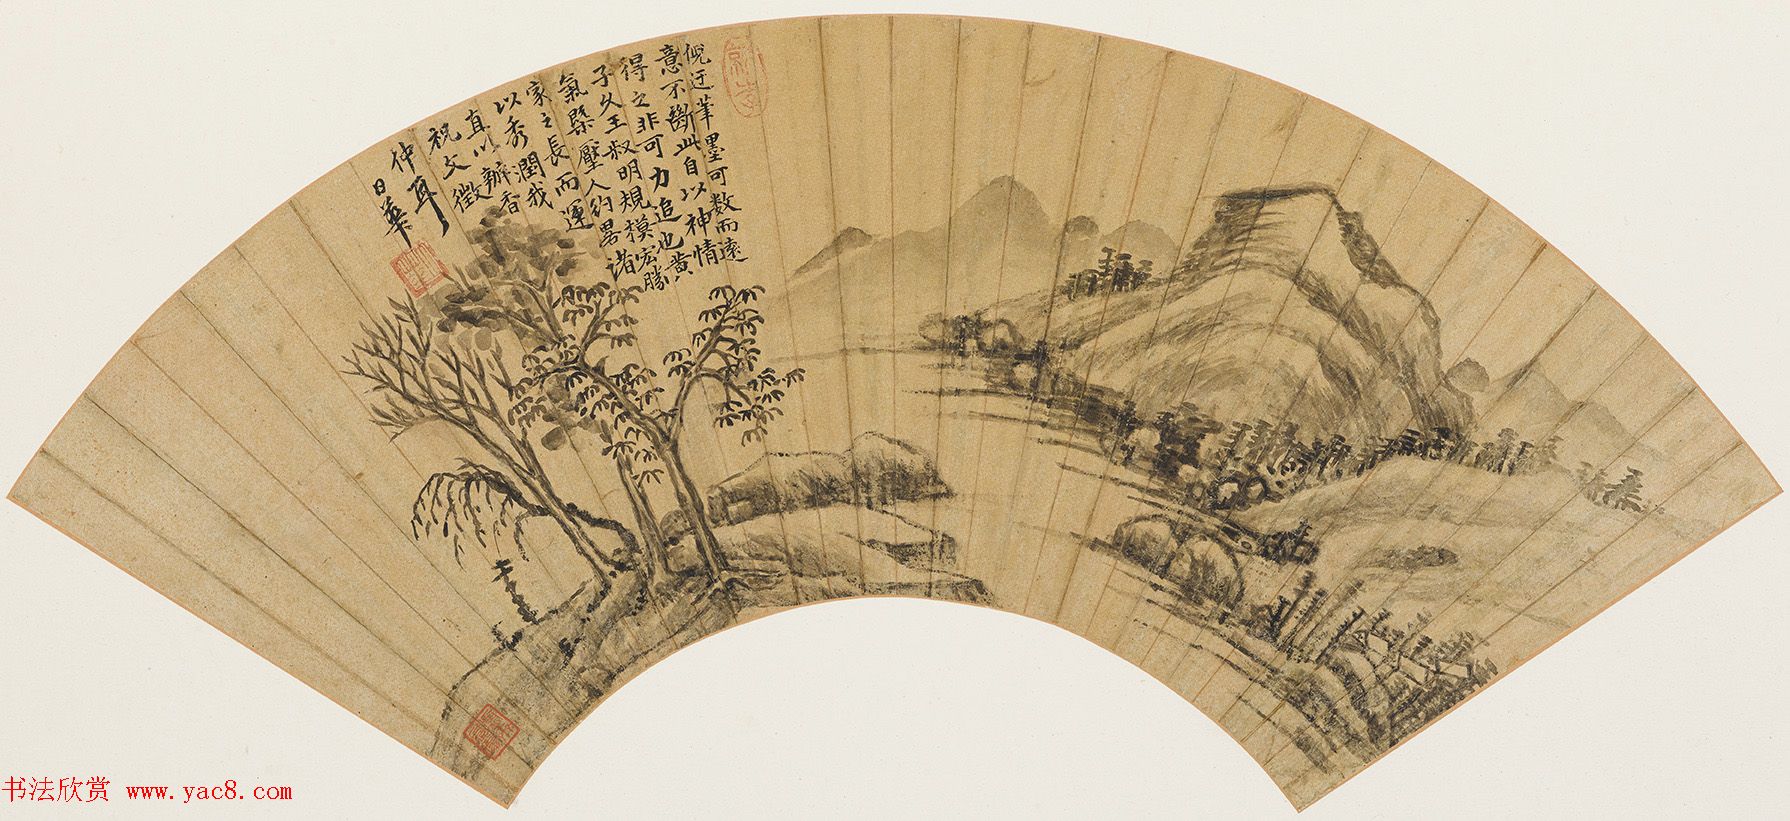 倪迂筆墨可数而遠
意不斷此自以神情
得之非可力追也黄
子久王叔明規模宏勝
氣槩壓人約畧諸
家之長而運
以秀潤我
直以辦香
祝文徵
仲耳
日華
书法欣赏 www.yac8.com